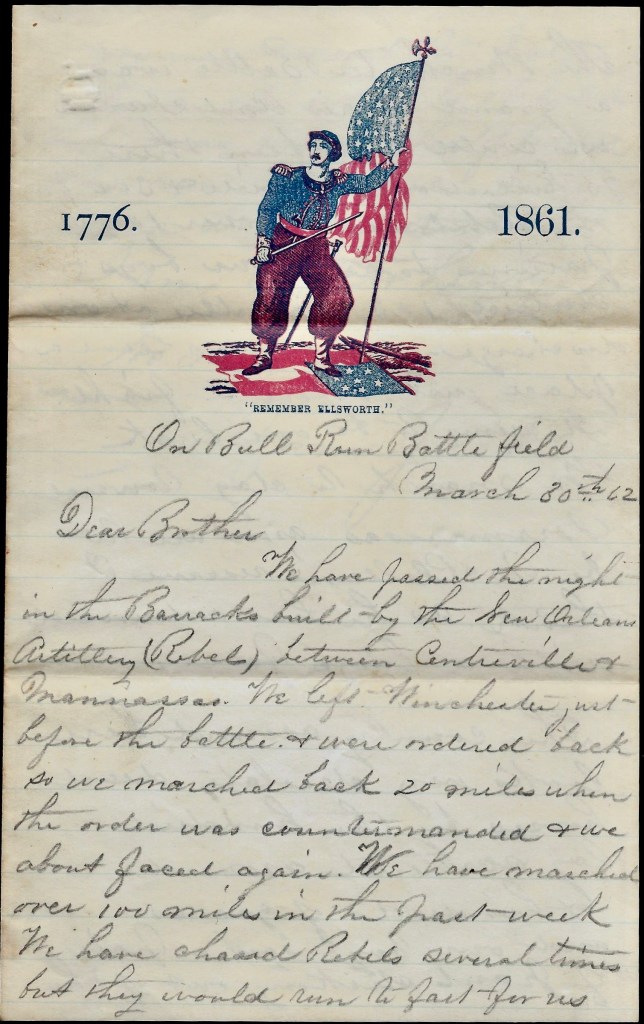 1776.
1861.
"REMEMBER ELLSWORTH."
On Bull Run Battle field
March 30th 62
Dear Brother
We have passed the night
in the Barracks built by the New Orleans
Artillery (Rebel) between Centreville &
Mannassas. We left Winchester just
before the battle. & were ordered back
so we marched back 20 miles when
the order was countermanded & we
about faced again. We have marched
over 100 miles in the past week
We have chased Rebels several times
but they would run to fast for us